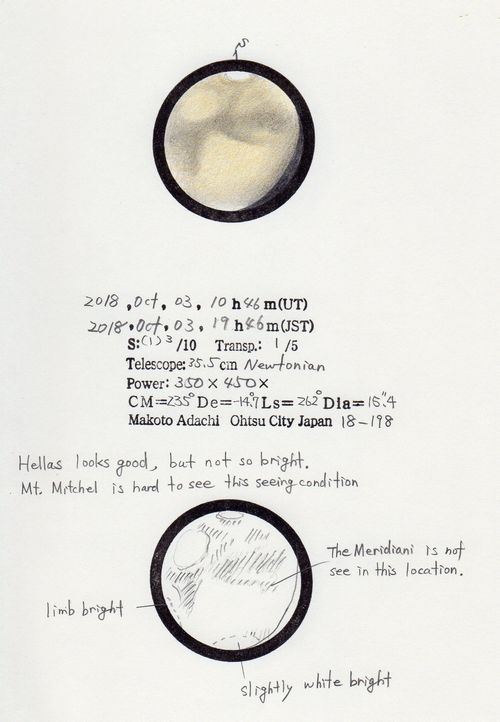 S
2018, Oct, 03, 10 h 46 m (UT)
2018. Oct, 03, 19 h 46 m (JST)
S: (1) 3 /10 Transp.: 1 /5
Telescope: 35.5 cm Newtonian
Power: 350 × 450 ×
CM=235° De=-14.9° Ls= 262° Dia= 15".4
Makoto Adachi Ohtsu City Japan 18-198
Hellas looks good, but not so bright.
Mt. Mitchel is hard to see this seeing condition
The Meridiani is not
see in this location.
limb bright
slightly white bright